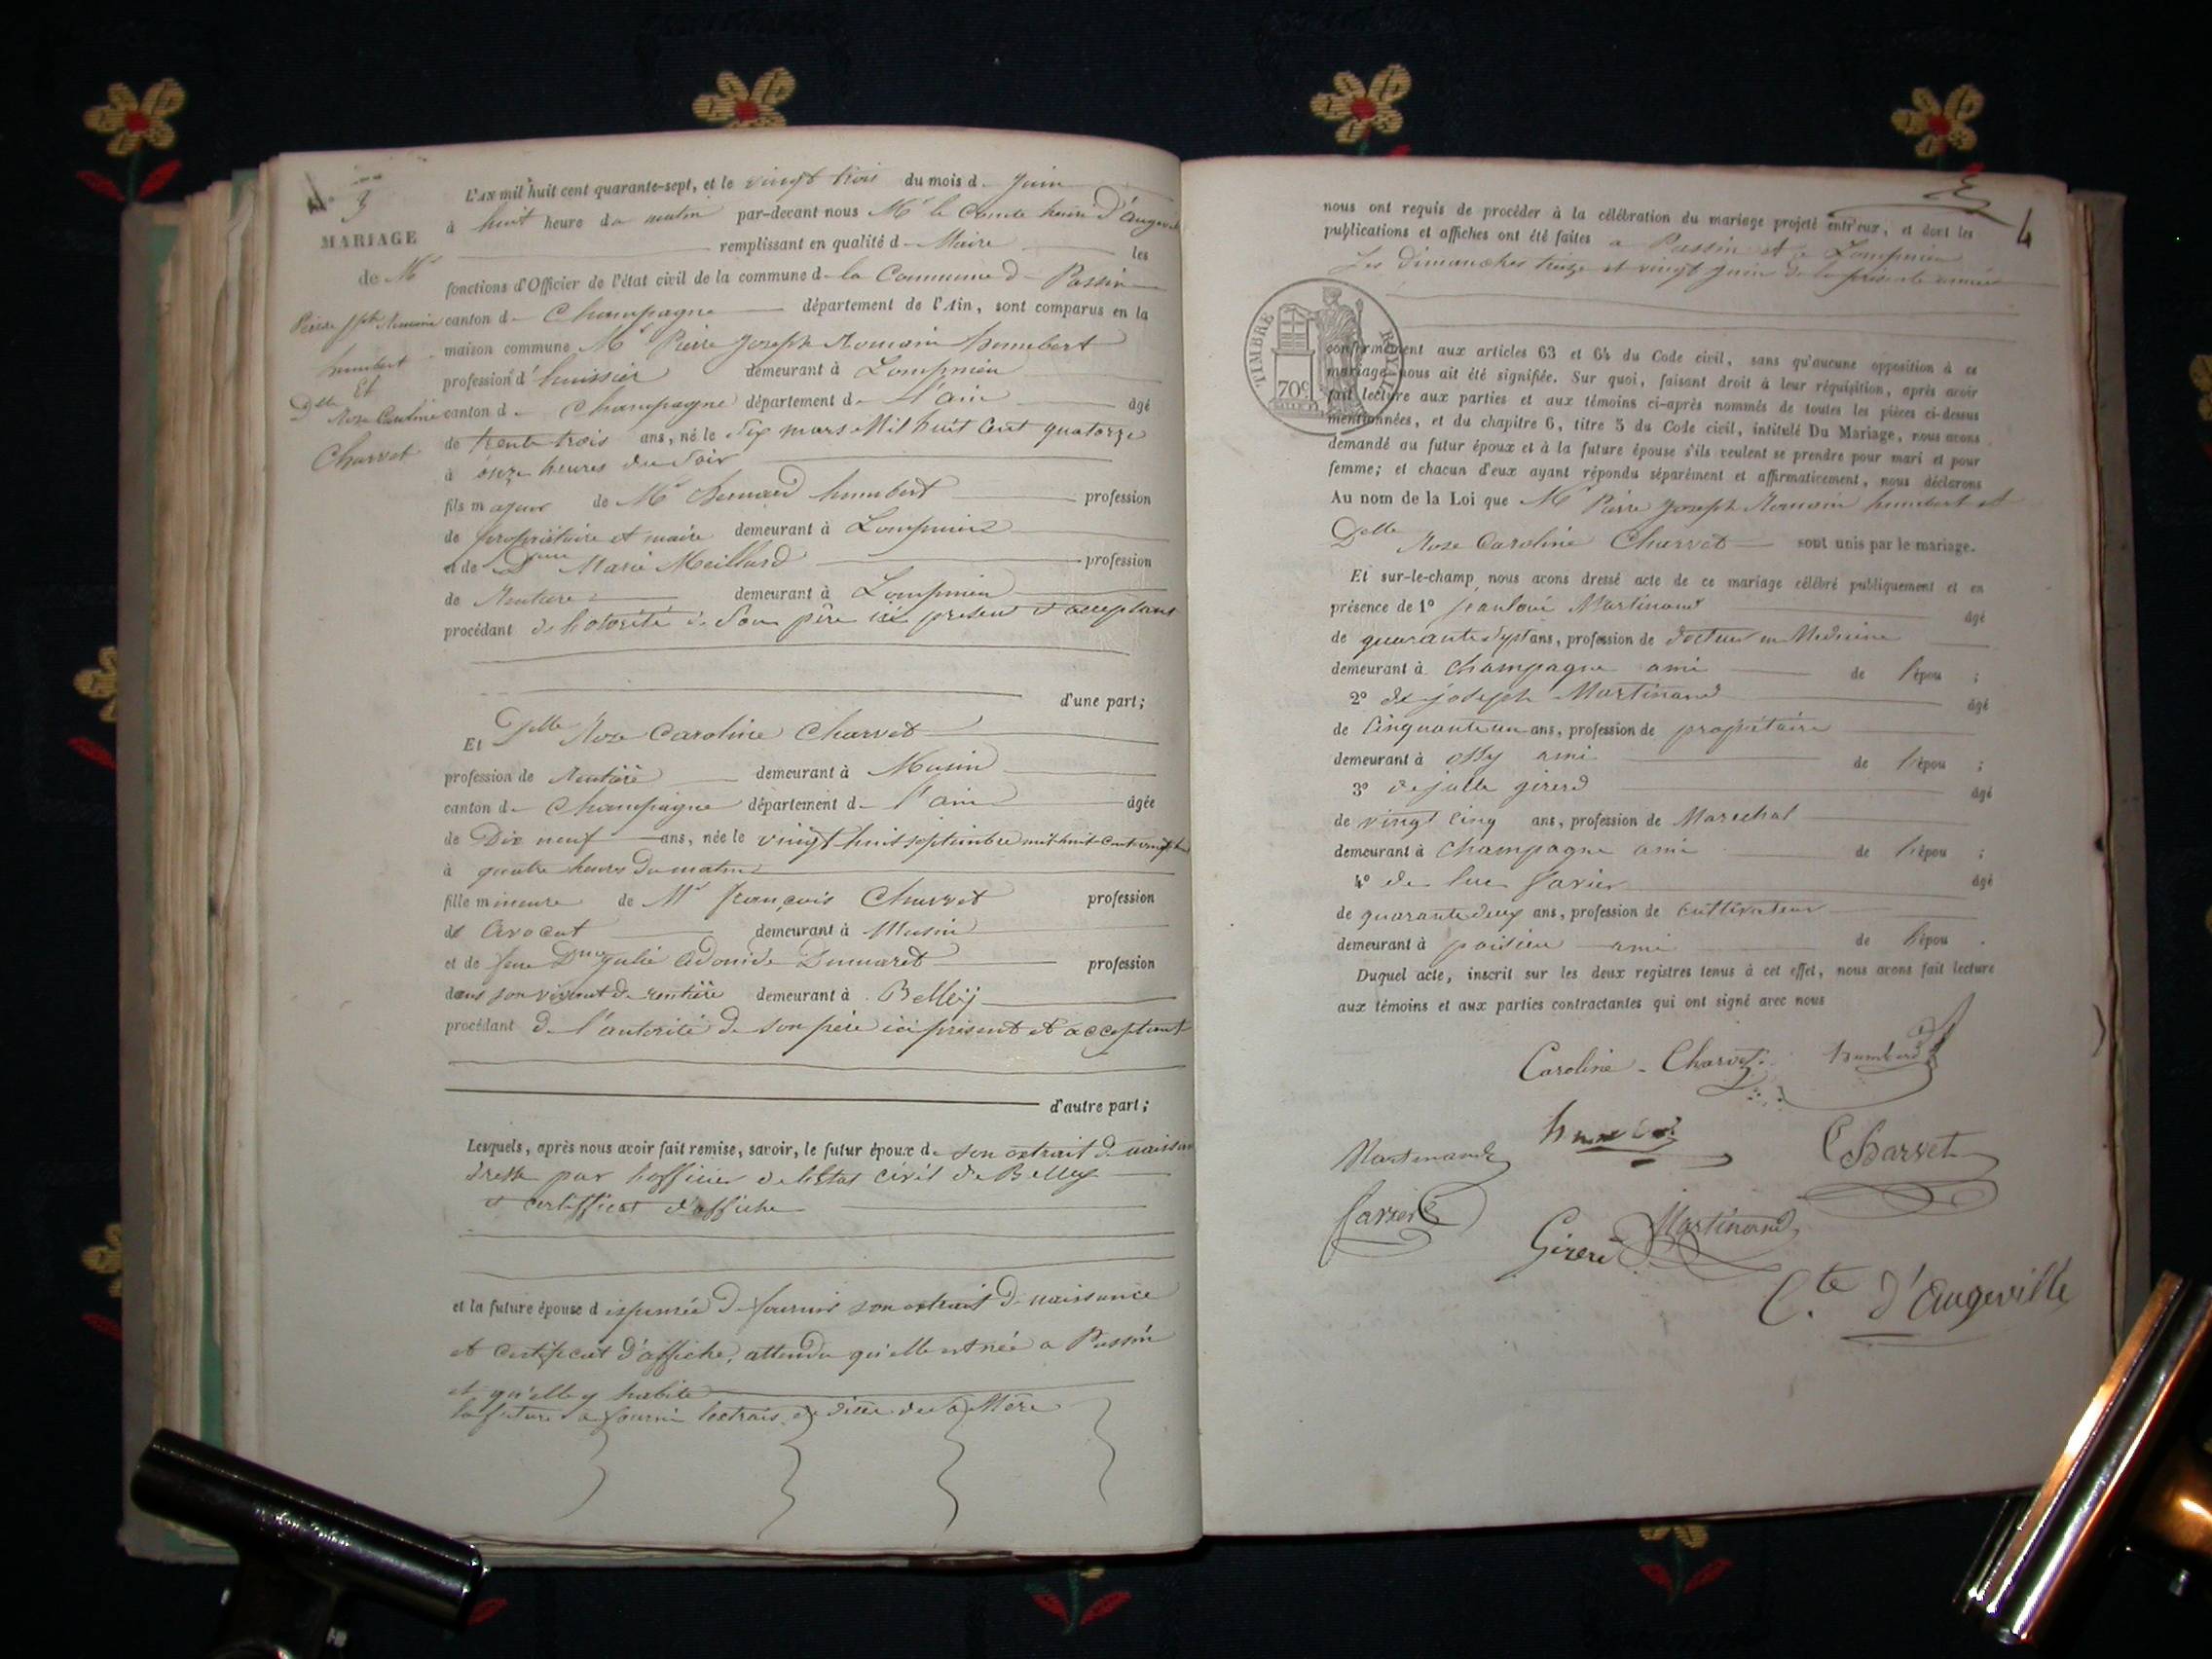 N° 3
MARIAGE
de Mr
Pierre Jph Romain
humbert
Et
Delle
Rose Caroline
Charvet
L'AN mil huit cent quarante-sept, et le vingt trois du mois d juin
à huit heure du matin par-devant nous Mr le Comte henri d'Angevil
remplissant en qualité d Maire les
fonctions d'Officier de l'état civil de la commune d la Commune de Passin
canton d Champagne département de l'Ain, sont comparus en la
maison commune Mr Pierre Joseph Romain humbert
profession d'huissier demeurant à Lompnieu
canton d Champagne département d l'ain âgé
de trente trois ans, né le Six mars Mil huit Cent quatorze
à onze heures du Soir
fils majeur de Mr humbert profession
de propriétaire et maire demeurant à Lompnieu
et de Dame Marie Meillard profession
de Rentiere demeurant à Lompnieu
procédant de lotorité de Son père ici présent et acceptant
d'une part;
Et Delle Rose Caroline Charvet
profession de Rentière demeurant à Musin
canton d Champagne département d l'ain âgée
de Dix neuf ans, née le vingt huit septembre mil huit Cent vingt
à quatre heures du matin
fille mineure de Mr françois Charvet profession
de Avocat demeurant à Musin
et de feue Dme Julie Adonide Dumaret profession
dans son vivant de rentière demeurant à Belley
procédant de l'autorité de son père ici présent et acceptant
d'autre part;
Lesquels, après nous avoir fait remise, savoir, le futur époux de son extrait de naissan
dressé par l'officier de l'État civil de Belley
et certifficat d'affiche
et la future épouse dispensée de fournir son extrait de naissance
et certificat d'affiche, attendu qu'elle est née a Passin
et qu'elle y habite
la future a fourni lextrait de de sa Mère
4
nous ont requis de procéder à la célébration du mariage projeté entr'eux, et dont les
publications et affiches ont été faites a Passin et a Lompnieu
Les dimanches treize et vingt juin de la présente année
TIMBRE ROYAL
70c
conformément aux articles 63 et 64 du Code civil, sans qu'aucune opposition à ce
mariage nous ait été signifiée. Sur quoi, faisant droit à leur réquisition, après avoir
fait lecture aux parties et aux témoins ci-après nommés de toutes les pièces ci-dessus
mentionnées, et du chapitre 6, titre 5 du Code civil, intitulé Du Mariage, nous avons
demandé au futur époux et à la future épouse s'ils veulent se prendre pour mari et pour
femme; et chacun d'eux ayant répondu séparément et affirmativement, nous déclarons
Au nom de la Loi que Mr Pierre Joseph Romain humbert et
Delle Rose Caroline Charvet sont unis par le mariage.
Et sur-le-champ nous avons dressé acte de ce mariage célébré publiquement et en
présence de 1° Martinand âgé
de quarante sept ans, profession de docteur en Medecine
demeurant à Champagne ami de l'épou ;
2° de joseph Martinand âgé
de Cinquante un ans, profession de propriétaire
demeurant à ossy ami de l'épou ;
3° de girerd âgé
de vingt Cinq ans, profession de Marechal
demeurant à Champagne ami de l'épou ;
4° de luc Savier âgé
de quarante deux ans, profession de Cultivateur
demeurant à poisieu ami de l'épou .
Duquel acte, inscrit sur les deux registres tenus à cet effet, nous avons fait lecture
aux témoins et aux parties contractantes qui ont signé avec nous
Caroline - Charvet humbert
Martinand humbert Charvet
Savier Girerd Martinand
C.te d'Angeville